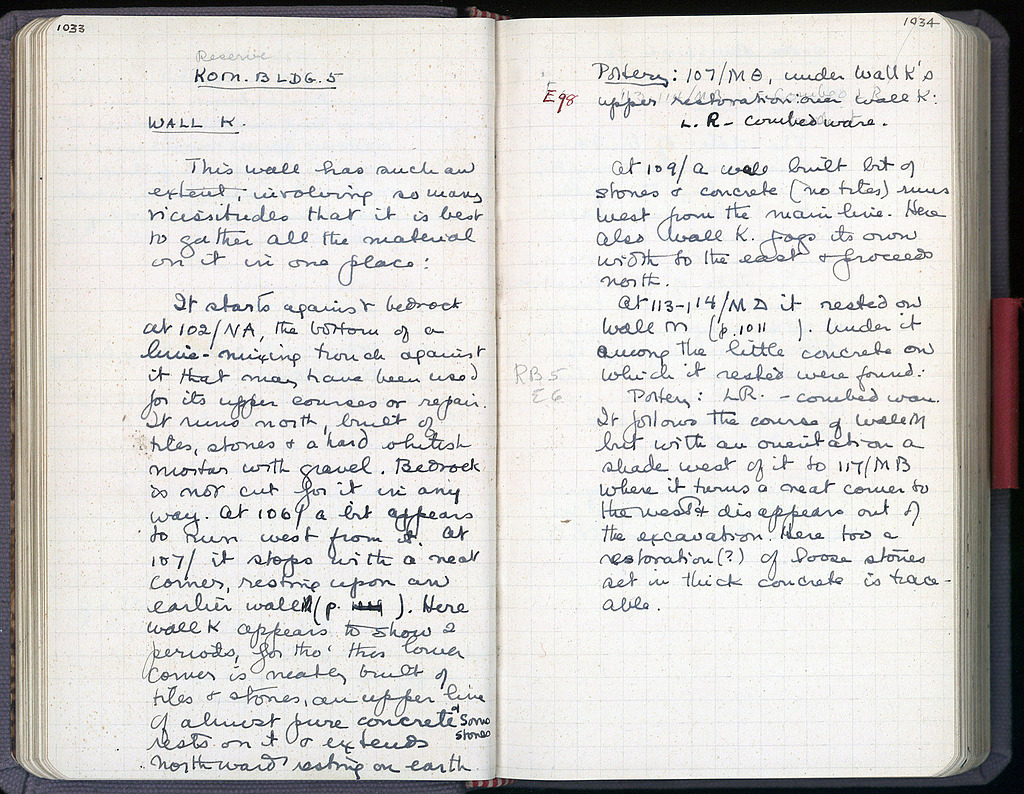 1033
Reserve
KOM. BLDG. 5
WALL K.
This wall has such an
extent, involving so many
vicissitudes that it is best
to gather all the material
on it in one place:
It starts against bedrock
at 102/NA, the bottom of a
lime-mixing trough against
it that may have been used
for its upper courses or repair.
It runs north, built of
tiles, stones & a hard whitish
mortar with gravel. Bedrock
is not cut for it in any
way. At 106/ a bit appears
to run west from it. At
107/ it stops with a neat
corner, resting upon an
earlier wall (p. ). Here
wall K appears to show 2
periods, for tho' this lower
corner is neatly built of
tiles & stones, an upper line
of almost pure concrete & some
stones
rests on it & extends
northward resting on earth.
1034
Pottery: 107/MΘ, under wall K's
E98
upper restoration over wall K:
L.R. - combed ware.
At 109/ a wall built bit of
stones & concrete (no tiles) runs
west from the main line. Here
also wall K. jogs its own
width to the east & proceeds
north.
At 113-114/MΔ it rested on
wall M (p. 1011 ). Under it
among the little concrete on
which it rested were found:
RB5
E6
Pottery: LR. - combed ware.
It follows the course of wall M
but with an orientation a
shade west of it to 117/MB
where it turns a neat corner to
the west & disappears out of
the excavation. Here too a
restoration(?) of loose stones
set in thick concrete is trace-
able.